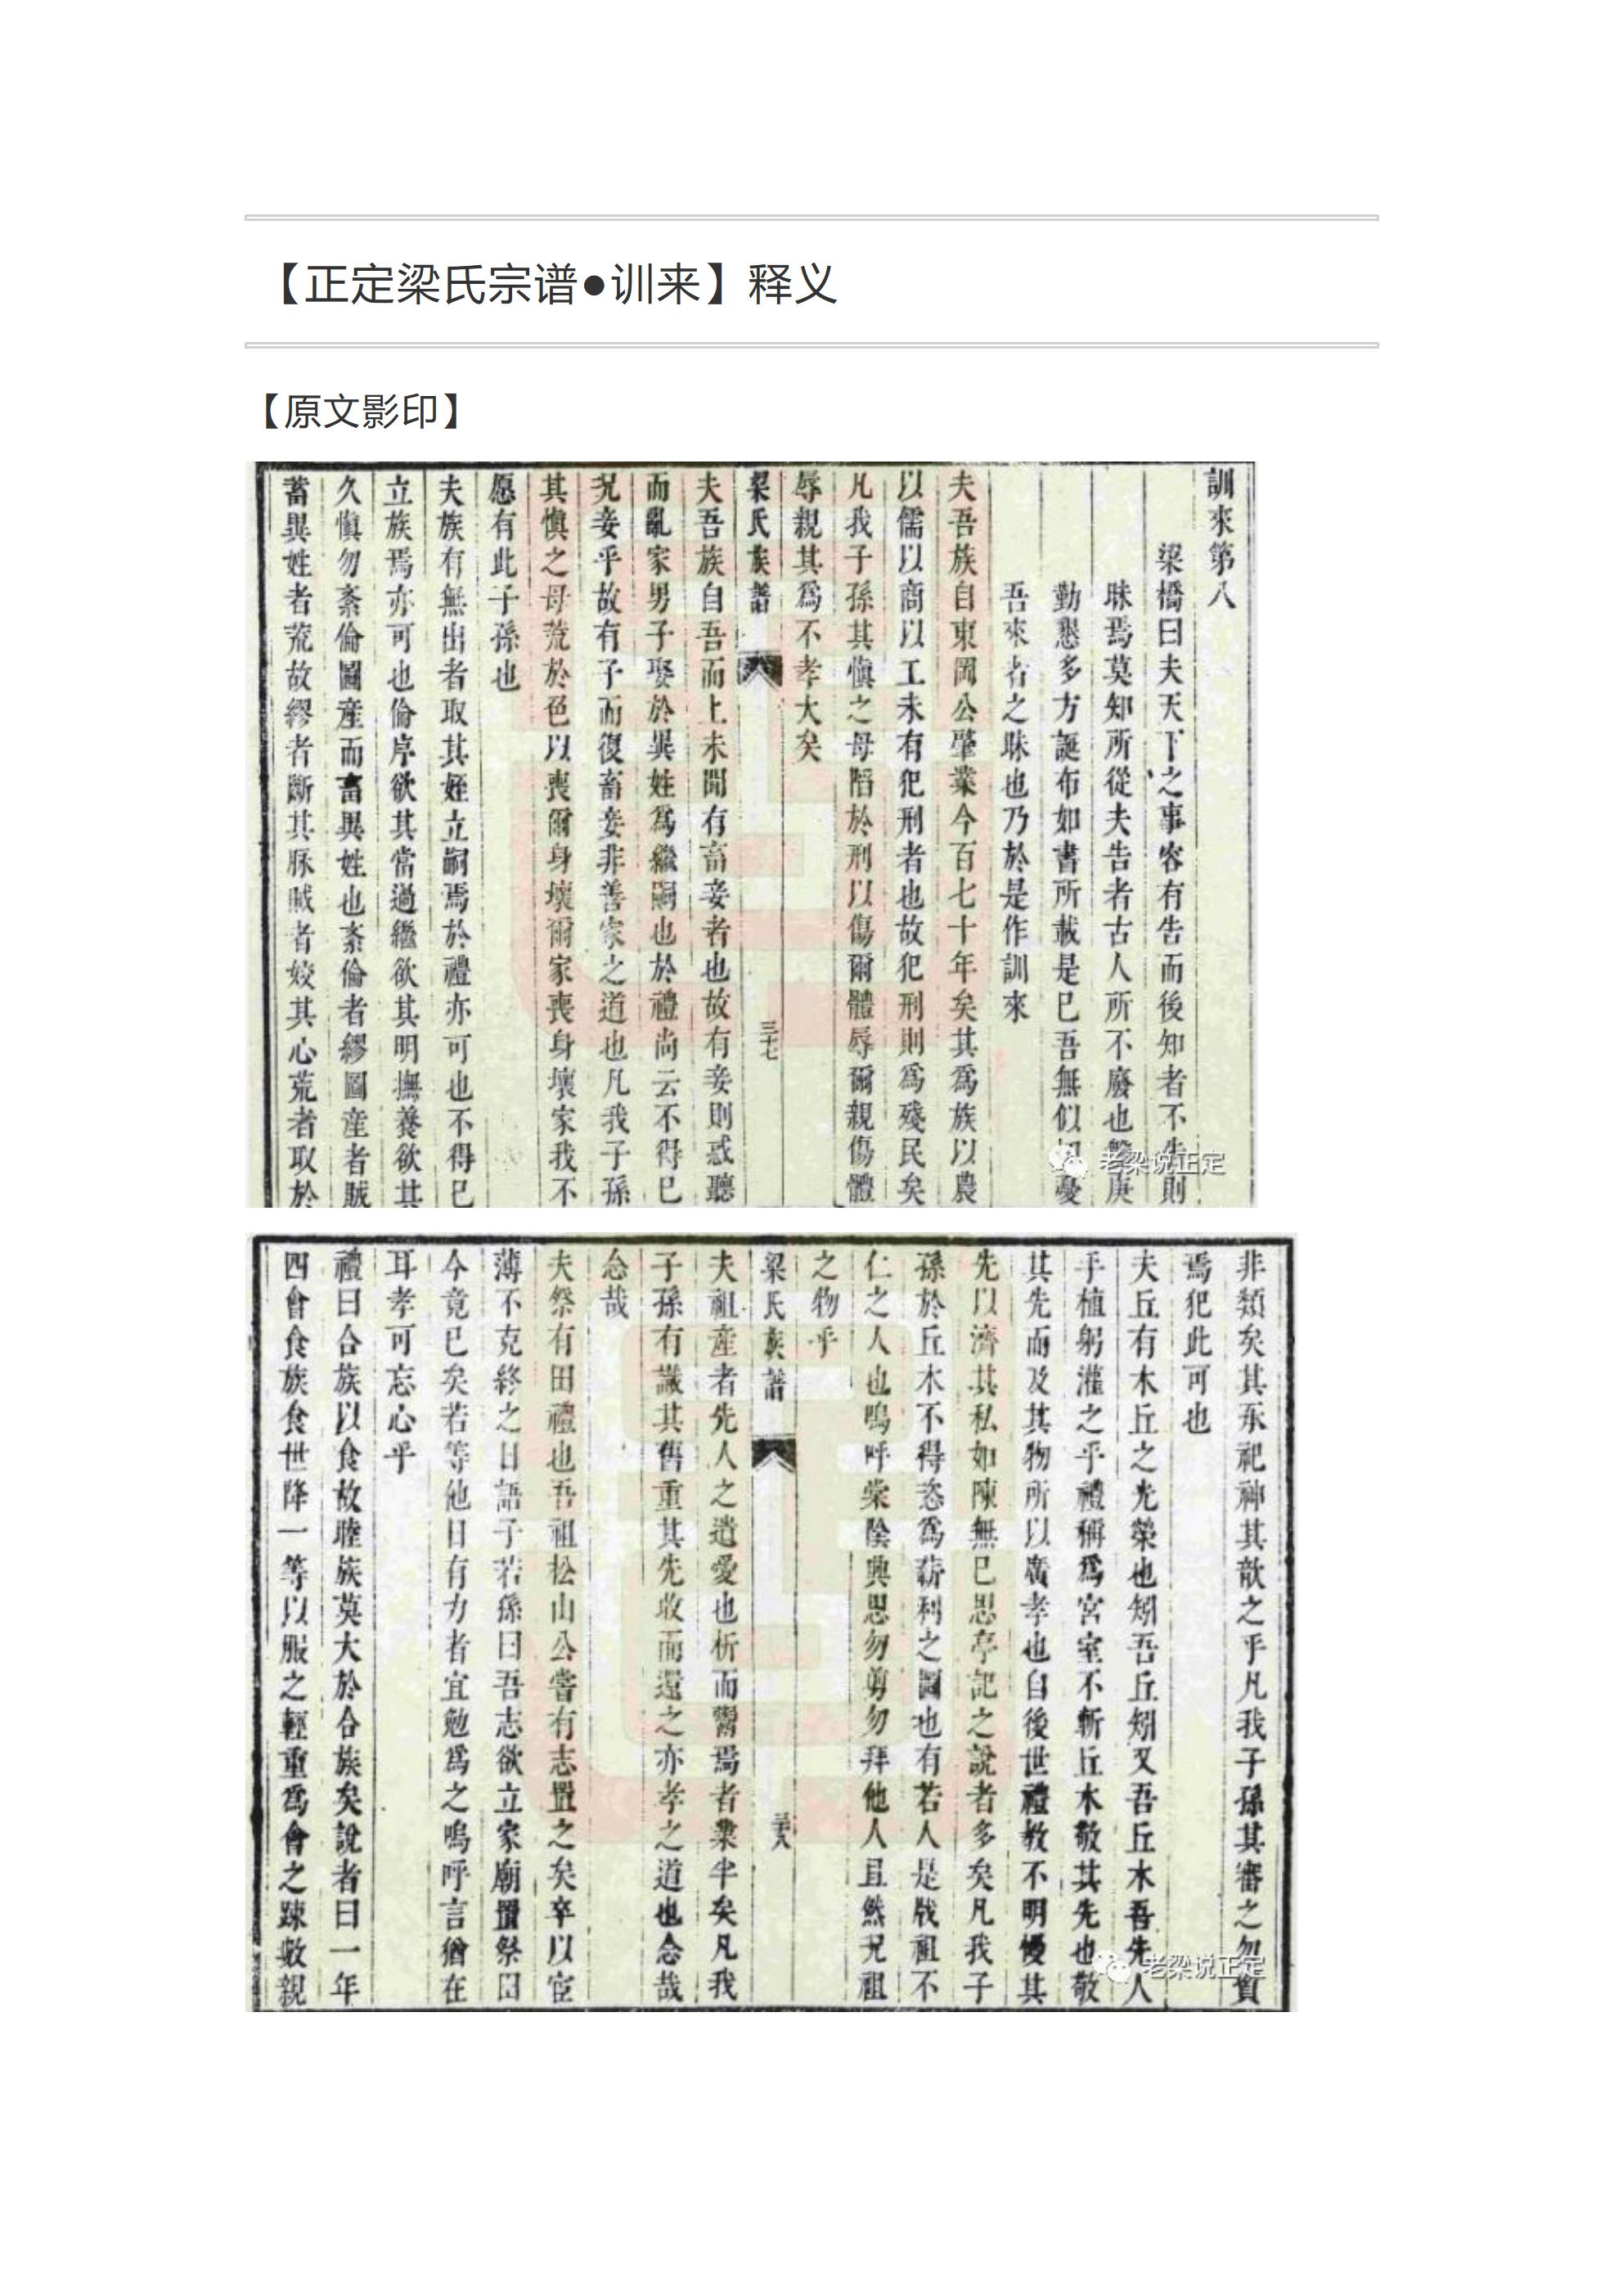 【正定梁氏宗谱●训来】释义
【原文影印】
訓來第八
梁橋曰夫天下之事容有告而後知者不告則
昧焉莫知所從夫告者古人所不廢也盤庚
勤懇多方誕布如書所載是已吾無似切憂
吾來者之昧也乃於是作訓來
夫吾族自東岡公肇業今百七十年矣其爲族以農
以儒以商以工未有犯刑者也故犯刑則爲殘民矣
凡我子孫其愼之母陷於刑以傷爾體辱爾親傷體
辱親其爲不孝大矣
梁氏族譜
三十七
夫吾族自吾而上未聞有畜妾者也故有妾則惑聽
而亂家男子娶於異姓爲繼嗣也於禮尚云不得已
況妾乎故有子而復畜妾非善家之道也凡我子孫
其愼之母荒於色以喪爾身壞爾家喪身壞家我不
愿有此子孫也
夫族有無出者取其姪立嗣焉於禮亦可也不得已
立族焉亦可也倫序欲其當過繼欲其明撫養欲其
久愼勿紊倫圖産而畜異姓也紊倫者繆圖産者賊
蓄異姓者荒故繆者斷其脈賊者姣其心荒者取於
老梁说正定
非類矣其承祀神其歆之乎凡我子孫其審之勿貿
焉犯此可也
夫丘有木丘之光榮也矧吾丘矧又吾丘木吾先人
手植躬灌之乎禮稱爲宮室不斬丘木敬其先也敬
其先而及其物所以廣孝也自後世禮教不明慢其
先以濟其私如陳無已思亭記之說者多矣凡我子
孫於丘木不得恣爲薪利之圖也有若人是戕祖不
仁之人也嗚呼棠陰興思勿剪勿拜他人且然況祖
之物乎
梁氏族譜
三十八
夫祖產者先人之遺愛也析而鬻焉者業半矣凡我
子孫有識其舊重其先收而還之亦孝之道也念哉
念哉
夫祭有田禮也吾祖松山公嘗有志置之矣卒以宦
薄不克終之日語子若孫曰吾志欲立家廟置祭田
今竟已矣若等他日有力者宜勉爲之嗚呼言猶在
耳孝可忘心乎
禮曰合族以食故睦族莫大於合族矣說者曰一年
四會食族食世降一等以服之輕重爲會之疎數親
老梁说正定